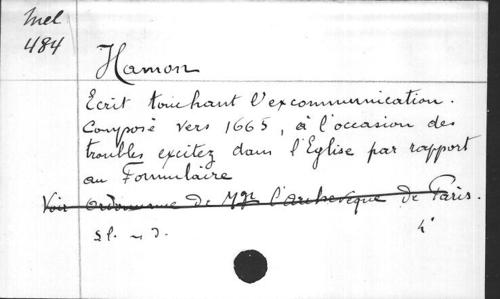 Mel
484
Hamon
Ecrit touchant l'excommunication.
Composé vers 1665, à l'occasion des
troubles excitez dans l'Eglise par rapport
au Formulaire
Voir ordonnance de Mgr l'archevêque de Paris.
4°